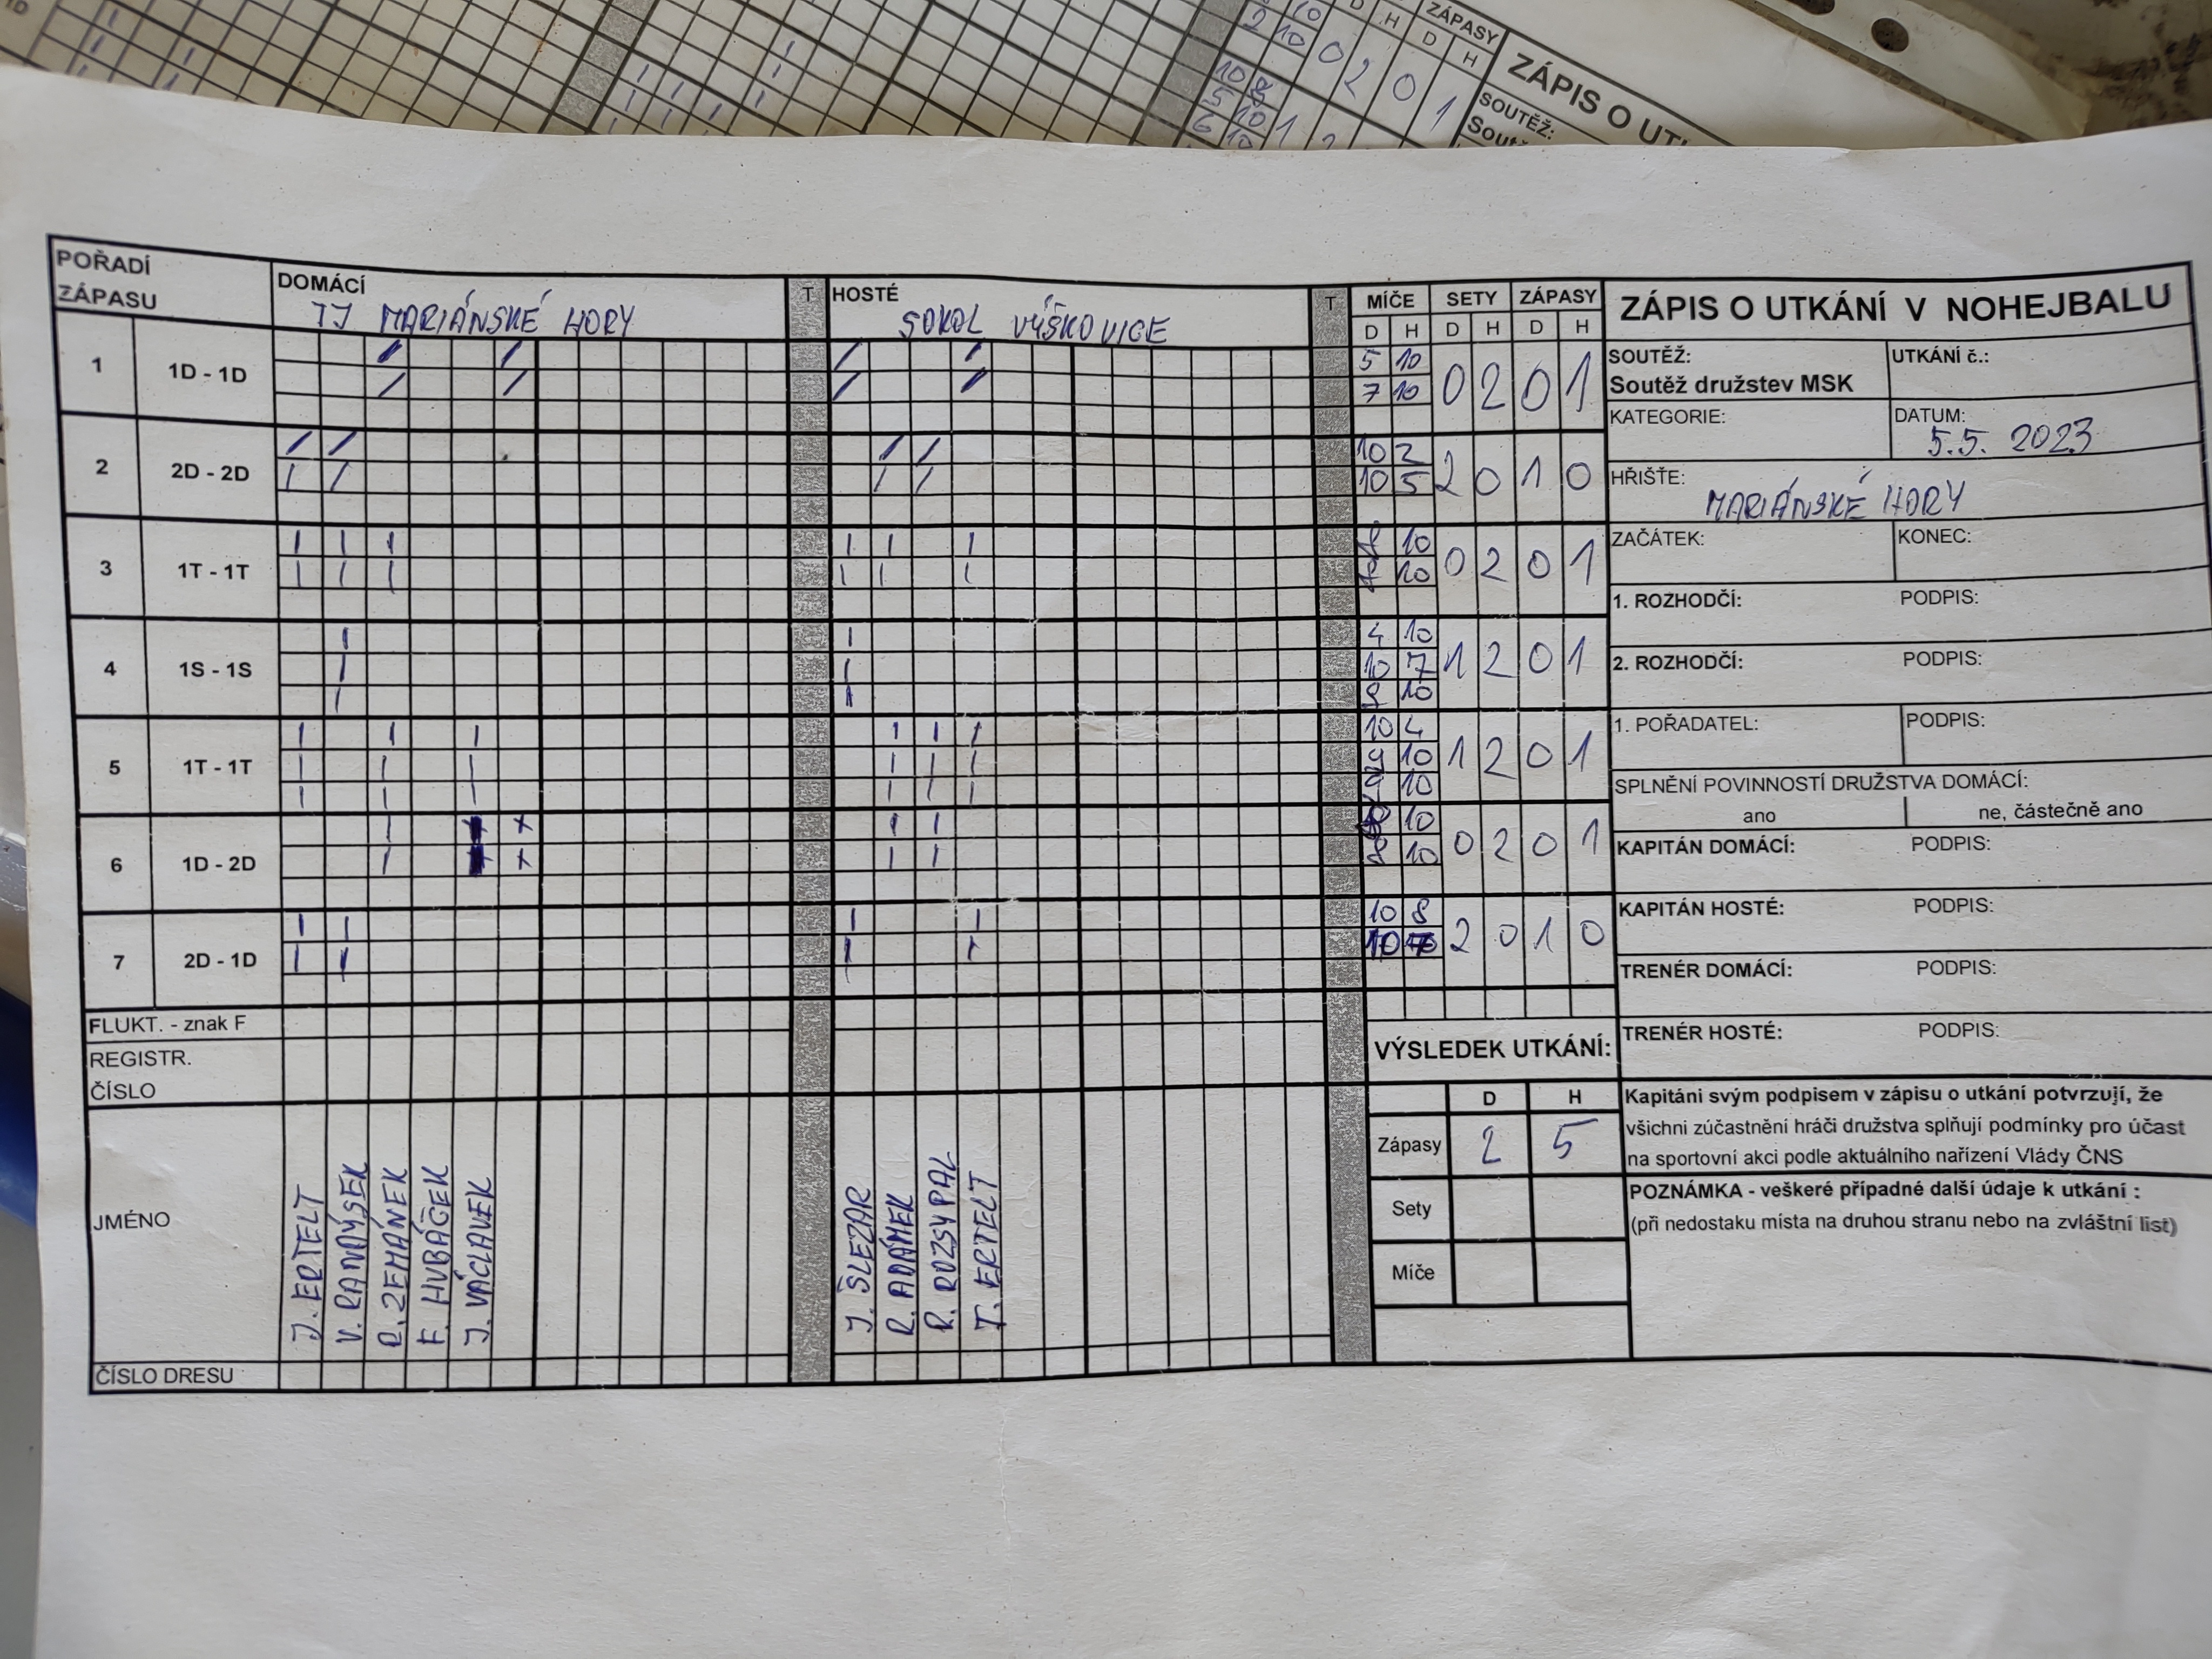 ZÁPASY
D H
ZÁPIS O UT
SOUTĚŽ:
POŘADÍ ZÁPASU
DOMÁCÍ
TJ MARIÁNSKÉ HORY
T
HOSTÉ
SOKOL VÝŠKOVICE
T
MÍČE SETY ZÁPASY
D H D H D H
1 1D - 1D
5 10
7 10
0 2 0 1
2 2D - 2D
10 2
10 5
2 0 1 0
3 1T - 1T
10
10
0 2 0 1
4 1S - 1S
4 10
10 7
8 10
1 2 0 1
5 1T - 1T
10 4
9 10
9 10
1 2 0 1
6 1D - 2D
10
8 10
0 2 0 1
7 2D - 1D
10 8
10 7
2 0 1 0
FLUKT. - znak F
REGISTR. ČÍSLO
JMÉNO
J. ERTELT
V. RANDÝSEK
R. ZEMÁNEK
F. HUBÁČEK
J. VÁCLAVEK
J. ŠLEZAR
R. ADÁMEK
R. ROZSYPAL
T. ERTELT
ČÍSLO DRESU
VÝSLEDEK UTKÁNÍ:
D H
Zápasy 2 5
Sety
Míče
ZÁPIS O UTKÁNÍ V NOHEJBALU
SOUTĚŽ:
Soutěž družstev MSK
UTKÁNÍ č.:
KATEGORIE:
DATUM:
5.5. 2023
HŘIŠTE:
MARIÁNSKÉ HORY
ZAČÁTEK: KONEC:
1. ROZHODČÍ: PODPIS:
2. ROZHODČÍ: PODPIS:
1. POŘADATEL: PODPIS:
SPLNĚNÍ POVINNOSTÍ DRUŽSTVA DOMÁCÍ:
ano ne, částečně ano
KAPITÁN DOMÁCÍ: PODPIS:
KAPITÁN HOSTÉ: PODPIS:
TRENÉR DOMÁCÍ: PODPIS:
TRENÉR HOSTÉ: PODPIS:
Kapitáni svým podpisem v zápisu o utkání potvrzují, že
všichni zúčastnění hráči družstva splňují podmínky pro účast
na sportovní akci podle aktuálního nařízení Vlády ČNS
POZNÁMKA - veškeré případné další údaje k utkání :
(při nedostaku místa na druhou stranu nebo na zvláštní list)